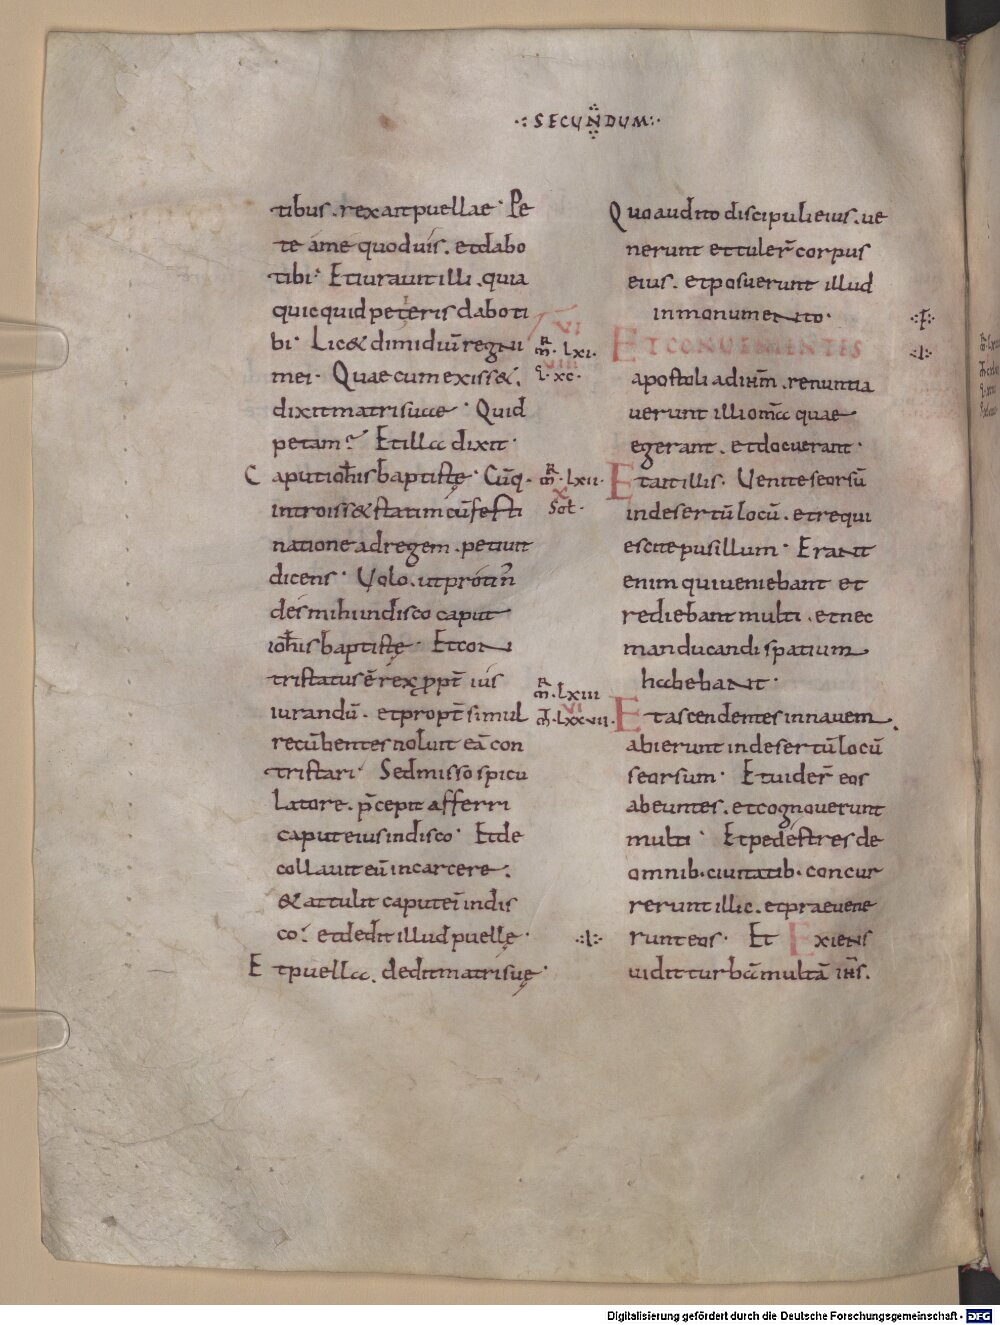 ·: SECUNDUM :·
tibus. rex ait puellae · Pe
te ame quod vis. et dabo
tibi · Et iuravit illi. quia
quicquid petieris dabo ti
bi · Lic& dimidiū regni
mei · Quae cum exiss&.
dixit matri suae · Quid
petam? Et illa dixit ·
Caput iohis baptiste · Cūq.
introiss& statim cū festi
natione ad regem. petiuit
dicens · Volo. ut protin
des mihi in disco caput
iohis baptiste · Et con
tristatus ē rex ppt ius
iurandū. et propt simul
recūbentes noluit eā con
tristari · Sed misso spicu
latore. pcepit afferri
caput eius in disco · Et de
collavit eū in carcere ·
& attulit caput ei in dis
co · et dedit illud puelle ·
Et puella. dedit matri sue ·
VI
m̄. Lxi.
VIII
xc.
m̄. Lxii.
X
Sol.
m̄. Lxiii
VI
Lxxvii.
·:l:·
Quo audito discipuli eius. ve
nerunt et tuler̄ corpus
eius. et posuerunt illud
in monumento ·
ET CONUENIENTES
apostoli ad ihm. renuntia
uerunt illi om̄a quae
egerant. et docuerant ·
Et ait illis. Uenite seorsū
in desertū locū. et requi
escite pusillum · Erant
enim qui veniebant et
rediebant multi. et nec
manducandi spatium
habebant ·
Et ascendentes in navem.
abierunt in desertū locū
seorsum · Et uider̄ eos
abeuntes. et cognoverunt
multi · Et pedestres de
omnib. civitatib. concur
rerunt illic. et praevene
runt eos · Et Exiens
vidit turbā multā ihs.
·:F:·
·:l:·
Digitalisierung gefördert durch die Deutsche Forschungsgemeinschaft - DFG